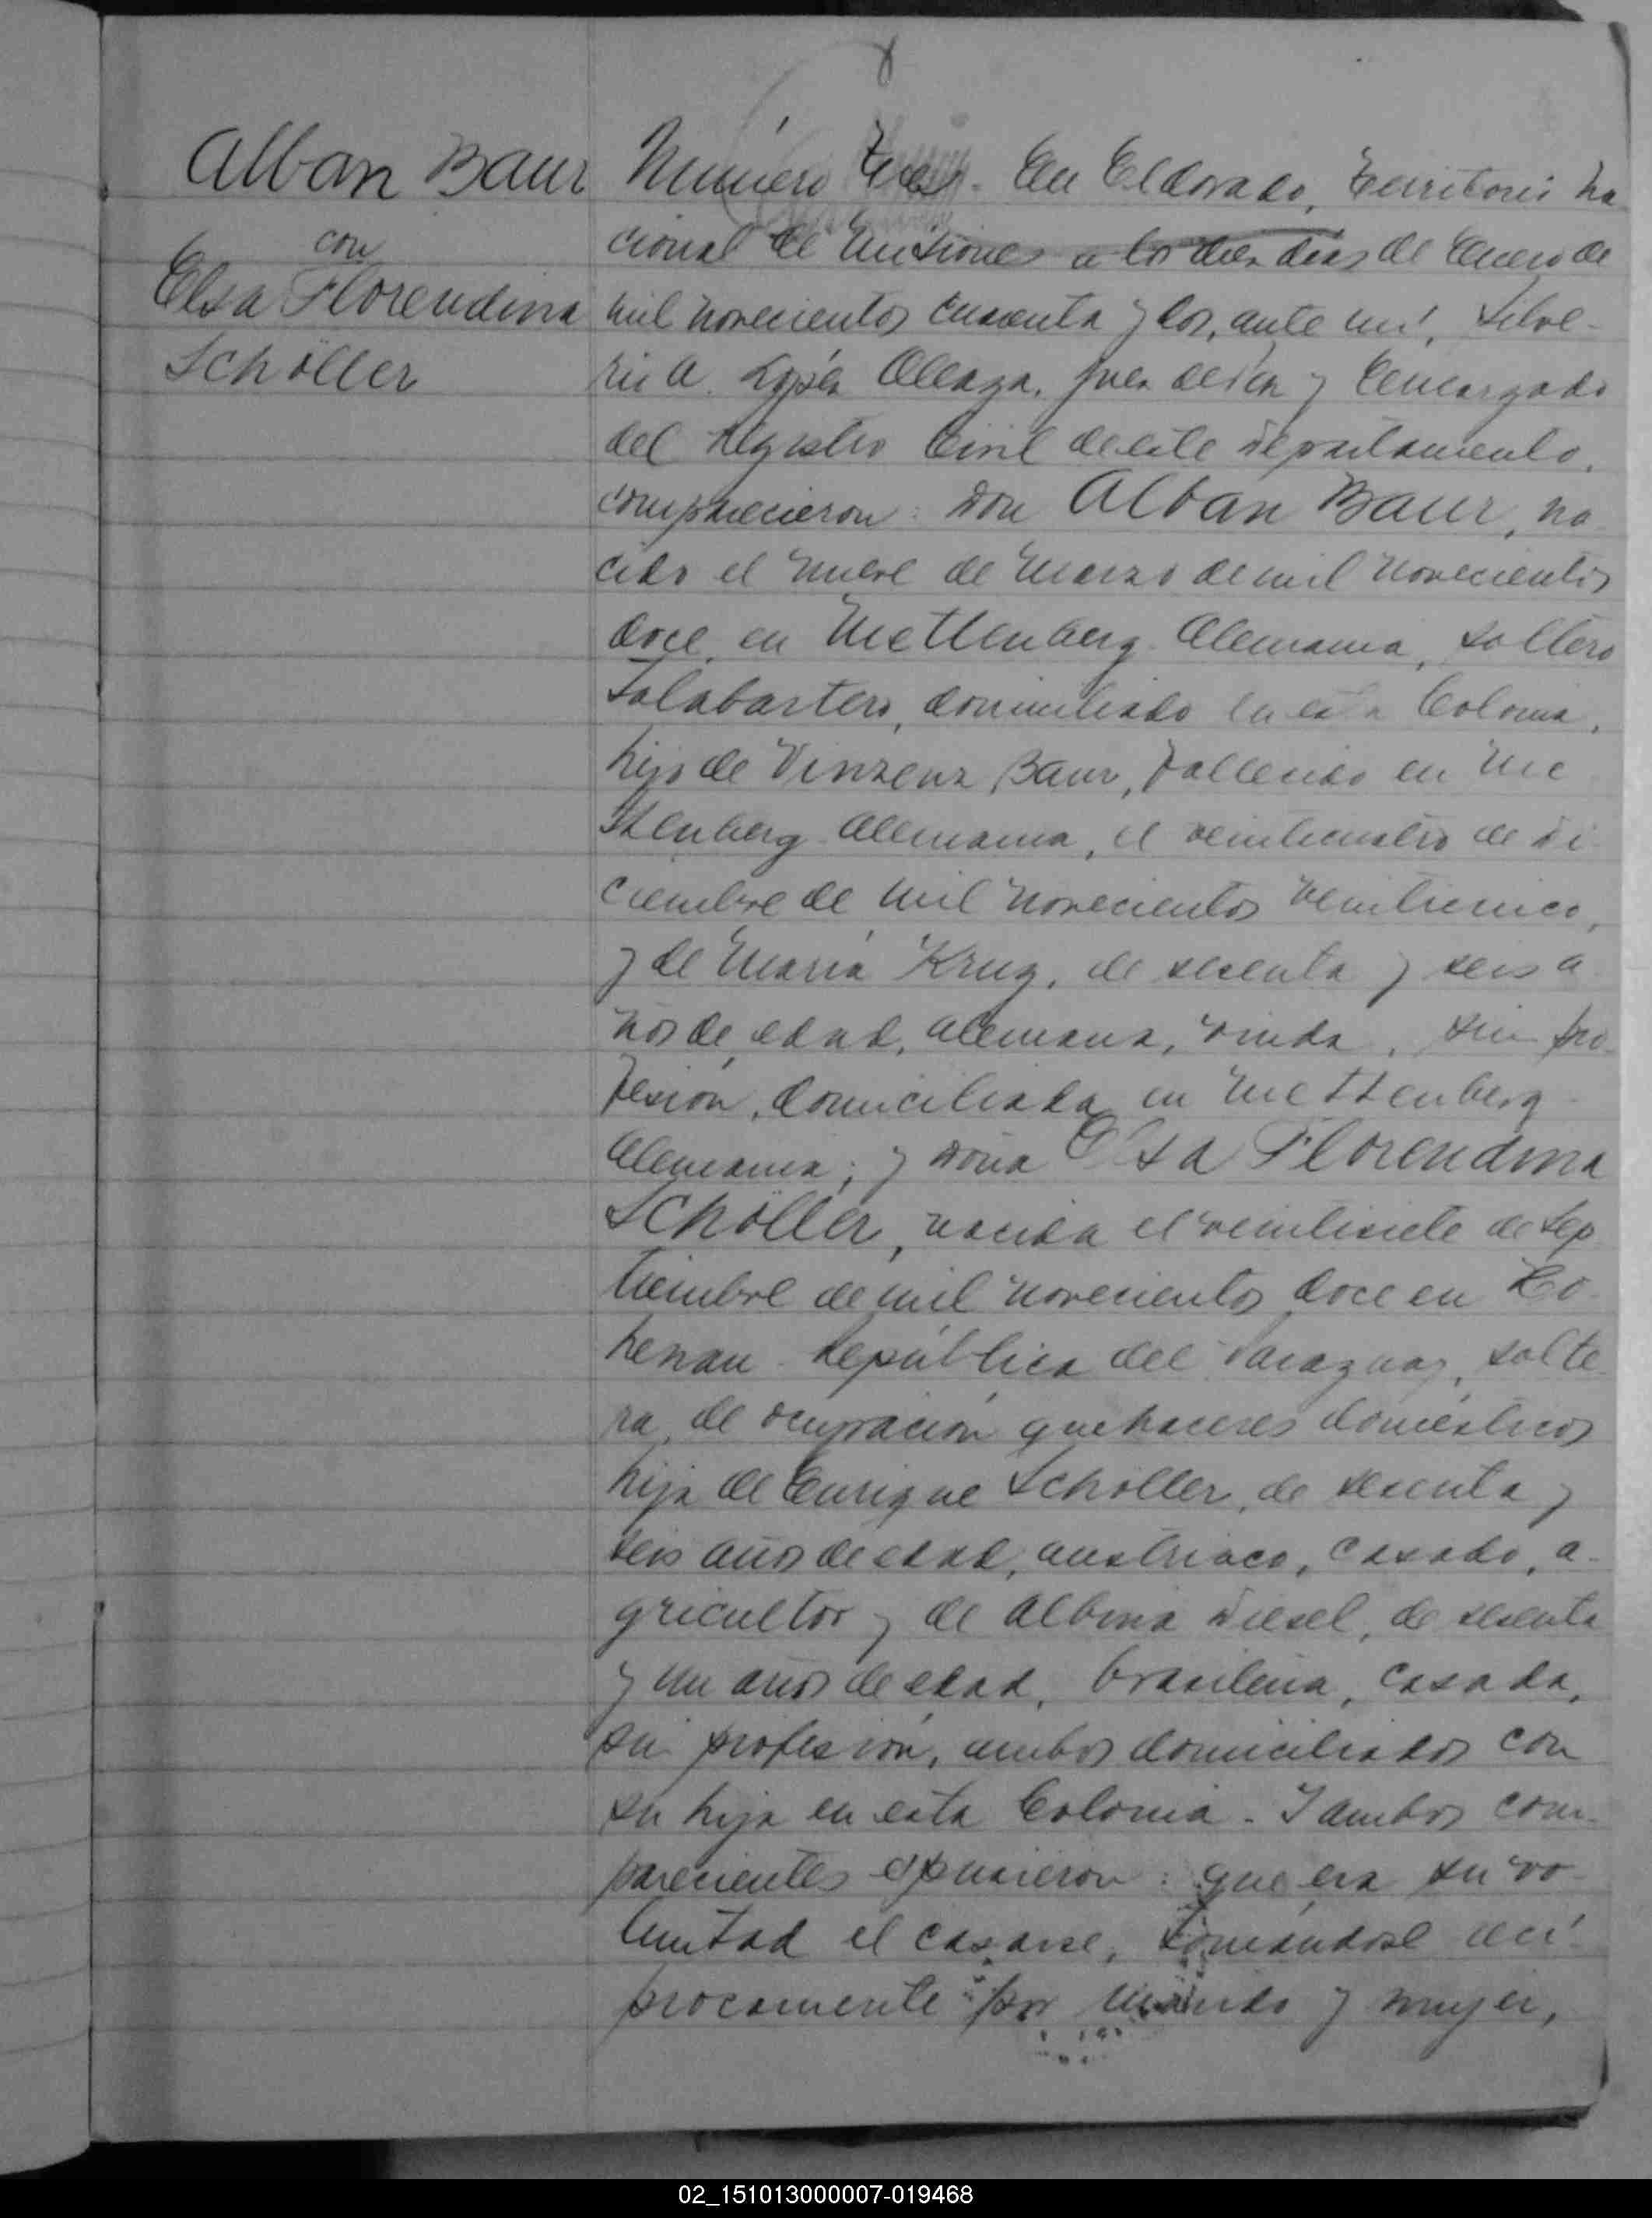 Alban Baur
con
Elsa Florendina
Schöller
Número Tres. En Eldorado, Territorio Na
cional de Misiones a los diez dias de Enero de
mil novecientos cuarenta y dos, ante mí, Silve-
rio A. López Aleaga, Juez de Paz y Encargado
del Registro Civil de este departamento,
comparecieron: Don Alban Baur, na
cido el nueve de Marzo de mil novecientos
doce, en Mettenberg - Alemania, soltero
Talabartero, domiciliado en esta Colonia,
hijo de Vinzenz Baur, fallecido en Me
ttenberg - Alemania, el veinticuatro de Di
ciembre de mil novecientos veinticinco,
y de Maria Krug, de sesenta y seis a
ños de edad, alemana, viuda, sin pro-
fesión, domiciliada en Mettenberg -
Alemania; y Doña Elsa Florendina
Schöller, nacida el veintisiete de Sep
tiembre de mil novecientos doce en Ho-
henau - República del Paraguay, solte
ra, de ocupación quehaceres domésticos
hija de Enrique Schöller, de sesenta y
seis años de edad, austriaco, casado, a-
gricultor y de Albina Diesel, de sesenta
y un años de edad, brasileña, casada,
sin profesión, ambos domiciliados con
su hija en esta Colonia. - Y ambos com-
parecientes expusieron: que era su vo-
luntad el casarse, tomándose recí-
procamente por marido y mujer,
02_151013000007-019468